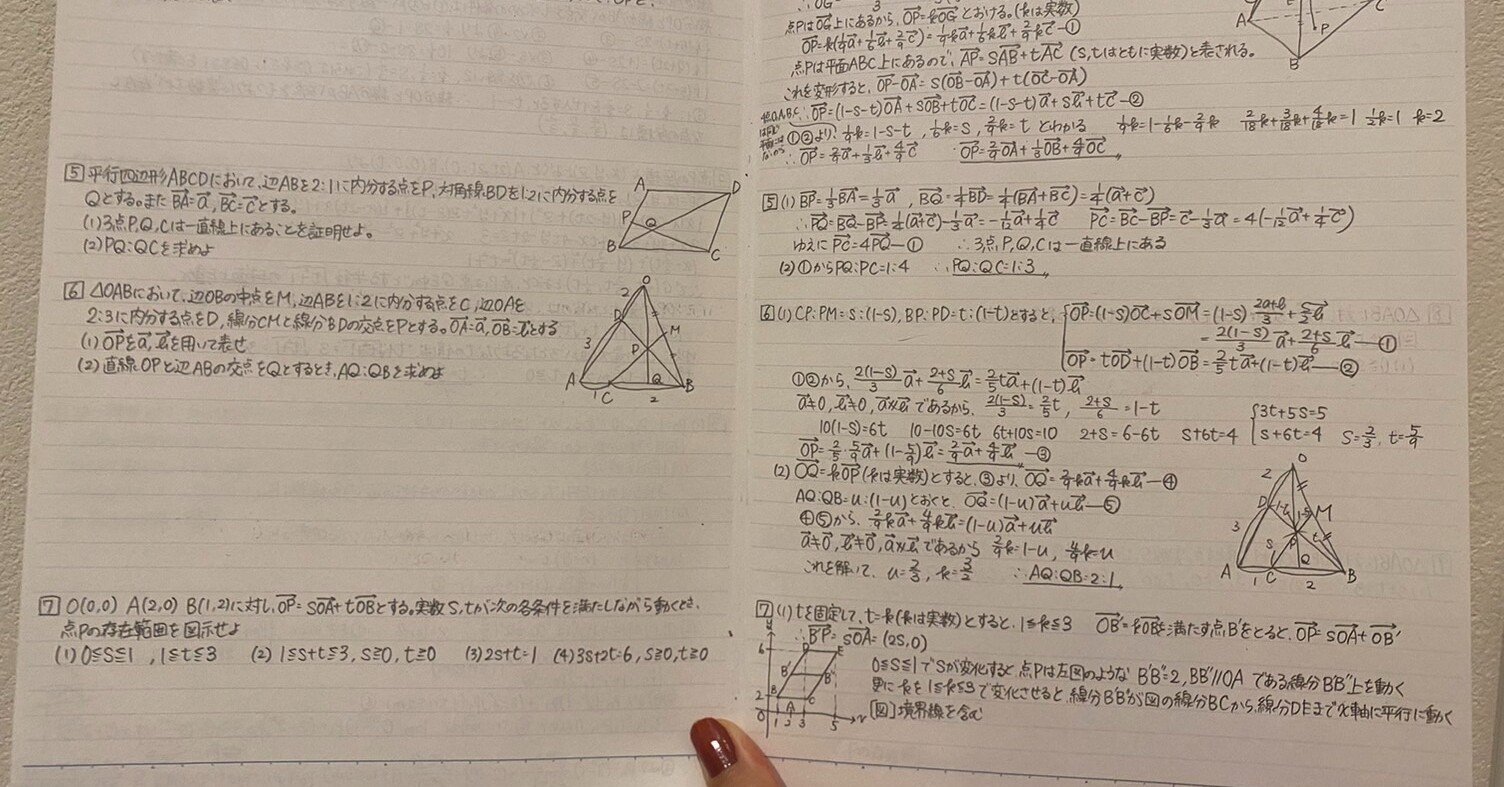 5 平行四辺形ABCDにおいて、辺ABを2:1に内分する点をP、対角線BDを1:2に内分する点を
Qとする。また BA=a, BC=cとする。
(1)3点P,Q,Cは一直線上にあることを証明せよ。
(2)PQ:QCを求めよ
A D P Q B C
6 △OABにおいて、辺OBの中点をM、辺ABを1:2に内分する点をC、辺OAを
2:3に内分する点をD、線分CMと線分BDの交点をPとする。OA=a, OB=bとする
(1)OPをa,bを用いて表せ
(2)直線OPと辺ABの交点をQとするとき、AQ:QBを求めよ
O 2 D M 3 P A 1 C Q 2 B
7 O(0,0) A(2,0) B(1,2)に対し、OP=sOA+tOBとする。実数s,tが次の各条件を満たしながら動くとき、
点Pの存在範囲を図示せよ
(1)0≦s≦1 , 1≦t≦3 (2) 1≦s+t≦3, s≧0, t≧0 (3)2s+t=1 (4)3s+2t=6, s≧0, t≧0
点PはOG上にあるから、OP=kOGとおける。(kは実数)
点Pは平面ABC上にあるので、AP=sAB+tAC (s,tはともに実数)と表される。
これを変形すると、OP-OA=s(OB-OA)+t(OC-OA)
∴OP=(1-s-t)OA+sOB+tOC=(1-s-t)a+sb+tc-②
A B C P
5 (1) BP=1/3BA=1/3a , BQ=1/4BD=1/4(BA+BC)=1/4(a+c)
∴PQ=BQ-BP=1/4(a+c)-1/3a=-1/12a+1/4c PC=BC-BP=c-1/3a=4(-1/12a+1/4c)
ゆえにPC=4PQ-① ∴3点P,Q,Cは一直線上にある
(2)①からPQ:PC=1:4 ∴PQ:QC=1:3
6 (1) CP:PM=s:(1-s), BP:PD=t:(1-t)とすると、OP=(1-s)OC+sOM=(1-s)(2a+b)/3+s/2b
=2(1-s)/3a+(2+s)/6b-①
OP=tOD+(1-t)OB=2/5ta+(1-t)b-②
①②から、2(1-s)/3a+(2+s)/6b=2/5ta+(1-t)b
a≠0, b≠0, a∦bであるから、2(1-s)/3=2/5t, (2+s)/6=1-t 3t+5s=5
10(1-s)=6t 10-10s=6t 6t+10s=10 2+s=6-6t s+6t=4 s+6t=4 s=2/3, t=5/9
OP=2/5・5/9a+(1-5/9)b=2/9a+4/9b-③
(2) OQ=kOP(kは実数)とすると、③より、OQ=2/9ka+4/9kb-④
AQ:QB=u:(1-u)とおくと、OQ=(1-u)a+ub-⑤
④⑤から、2/9ka+4/9kb=(1-u)a+ub
a≠0, b≠0, a∦bであるから 2/9k=1-u, 4/9k=u
これを解いて、u=2/3, k=3/2 ∴AQ:QB=2:1
O 2 D 1-t 1-s M 3 P s t A 1 C Q 2 B
7 (1) tを固定して、t=k(kは実数)とすると、1≦k≦3 OB'=kOBを満たす点B'をとると、OP=sOA+OB'
∴B'P=sOA=(2s,0)
0≦s≦1でsが変化すると、点Pは左図のような B'B''=2, BB''//OA である線分BB''上を動く
更にkを1≦k≦3で変化させると、線分B'B''が図の線分BCから、線分DEまでx軸に平行に動く
[図]境界線を含む
y 6 D E B' B'' 2 B C O A 1 2 3 5 x